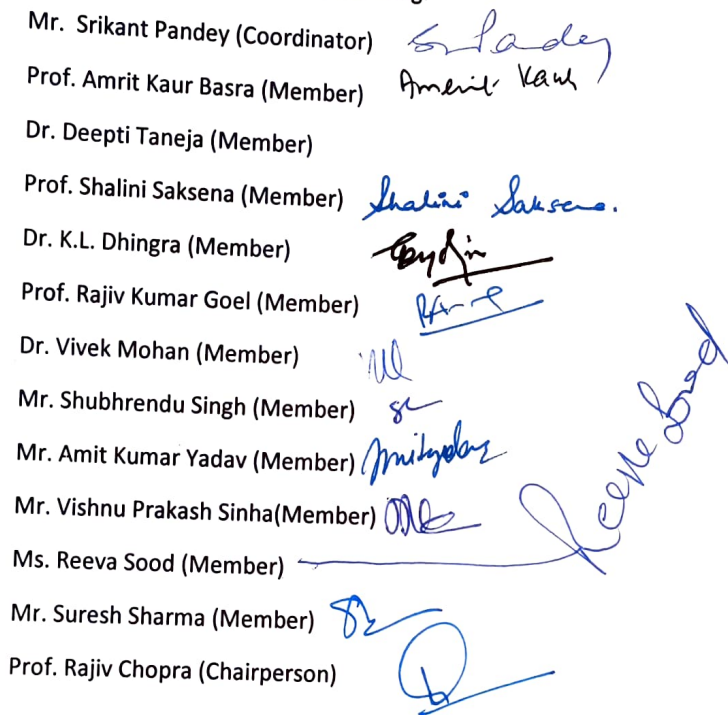 Mr. Srikant Pandey (Coordinator) S. Pandey
Prof. Amrit Kaur Basra (Member) Amrit Kaur
Dr. Deepti Taneja (Member)
Prof. Shalini Saksena (Member) Shalini Saksena.
Dr. K.L. Dhingra (Member)
Prof. Rajiv Kumar Goel (Member)
Dr. Vivek Mohan (Member)
Mr. Shubhrendu Singh (Member)
Mr. Amit Kumar Yadav (Member)
Mr. Vishnu Prakash Sinha(Member)
Ms. Reeva Sood (Member)
Mr. Suresh Sharma (Member)
Prof. Rajiv Chopra (Chairperson)